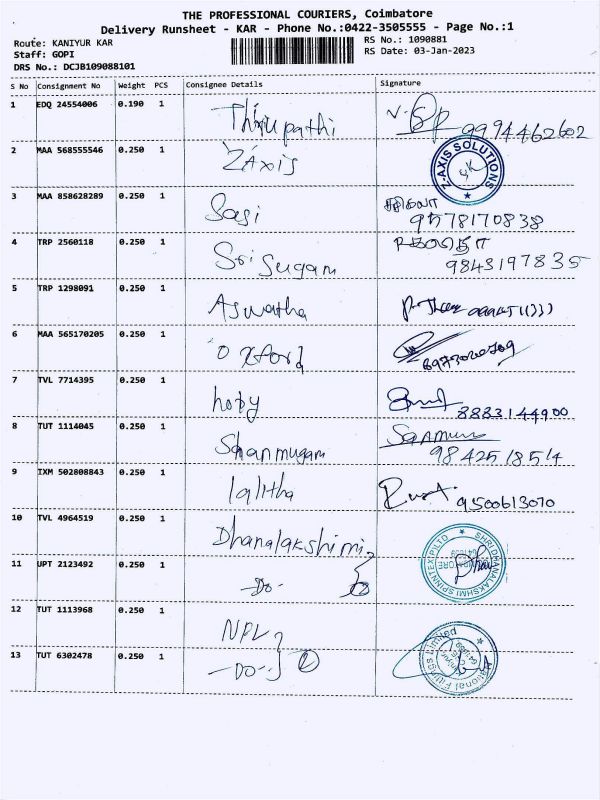 THE PROFESSIONAL COURIERS, Coimbatore
Delivery Runsheet - KAR - Phone No.:0422-3505555 - Page No.:1
Route: KANIYUR KAR
Staff: GOPI
DRS No.: DCJB109088101
RS No.: 1090881
RS Date: 03-Jan-2023
S No Consignment No Weight PCS Consignee Details Signature
1 EDQ 24554006 0.190 1 Thirupathi 9994462602
2 MAA 568555546 0.250 1 ZAxis
Z-AXIS SOLUTIONS
3 MAA 858628289 0.250 1 Sasi
9578170838
4 TRP 2560118 0.250 1 Sri Sugam
9843197835
5 TRP 1298091 0.250 1 Aswatha
6 MAA 565170205 0.250 1 Oxford
7 TVL 7714395 0.250 1 8883144900
8 TUT 1114045 0.250 1 Shanmugam
9842518514
9 IXM 502808843 0.250 1 lalitha 9500613070
10 TVL 4964519 0.250 1 Dhanalakshimi
SHRI DHANALAKSHMI SPINNTEX P LTD
11 UPT 2123492 0.250 1 -Do- 2
12 TUT 1113968 0.250 1 NFL
National Fittings Limited
13 TUT 6302478 0.250 1 -Do- 2